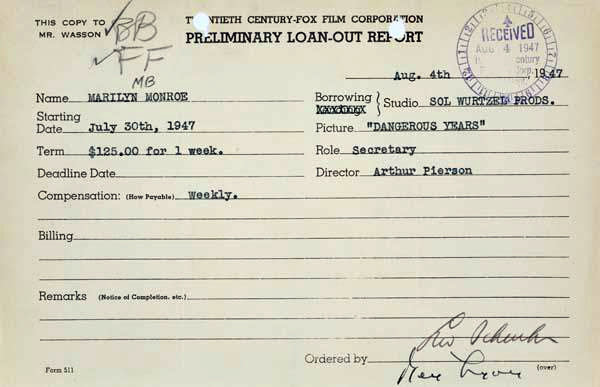 THIS COPY TO
MR. WASSON
BB
FF
MB
TWENTIETH CENTURY-FOX FILM CORPORATION
PRELIMINARY LOAN-OUT REPORT
RECEIVED
AUG 4 1947
Aug. 4th 1947
Name MARILYN MONROE
Borrowing Studio SOL WURTZEL PRODS.
Starting
Date July 30th, 1947
Picture "DANGEROUS YEARS"
Term $125.00 for 1 week.
Role Secretary
Deadline Date
Director Arthur Pierson
Compensation: (How Payable) Weekly.
Billing
Remarks (Notice of Completion, etc.)
Ordered by
Form 511
(over)